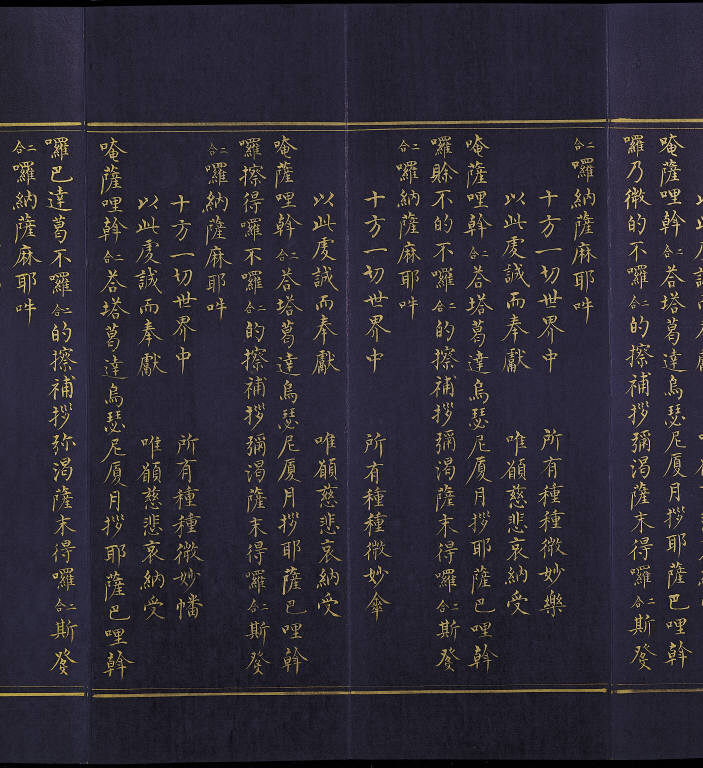 以此虔誠而奉獻 唯願慈悲哀納受
唵薩哩斡二合荅塔葛達烏瑟尼厦月拶耶薩巴哩斡
囉乃微的不囉二合的擦補拶彌渴薩末得囉二合斯發
二合囉納薩麻耶吽
十方一切世界中 所有種種微妙樂
以此虔誠而奉獻 唯願慈悲哀納受
唵薩哩斡二合荅塔葛達烏瑟尼厦月拶耶薩巴哩斡
囉賒不的不囉二合的擦補拶彌渴薩末得囉二合斯發
二合囉納薩麻耶吽
十方一切世界中 所有種種微妙傘
以此虔誠而奉獻 唯願慈悲哀納受
唵薩哩斡二合荅塔葛達烏瑟尼厦月拶耶薩巴哩斡
囉擦得囉不囉二合的擦補拶彌渴薩末得囉二合斯發
二合囉納薩麻耶吽
十方一切世界中 所有種種微妙幡
以此虔誠而奉獻 唯願慈悲哀納受
唵薩哩斡二合荅塔葛達烏瑟尼厦月拶耶薩巴哩斡
囉巴達葛不囉二合的擦補拶弥渴薩末得囉二合斯發
二合囉納薩麻耶吽